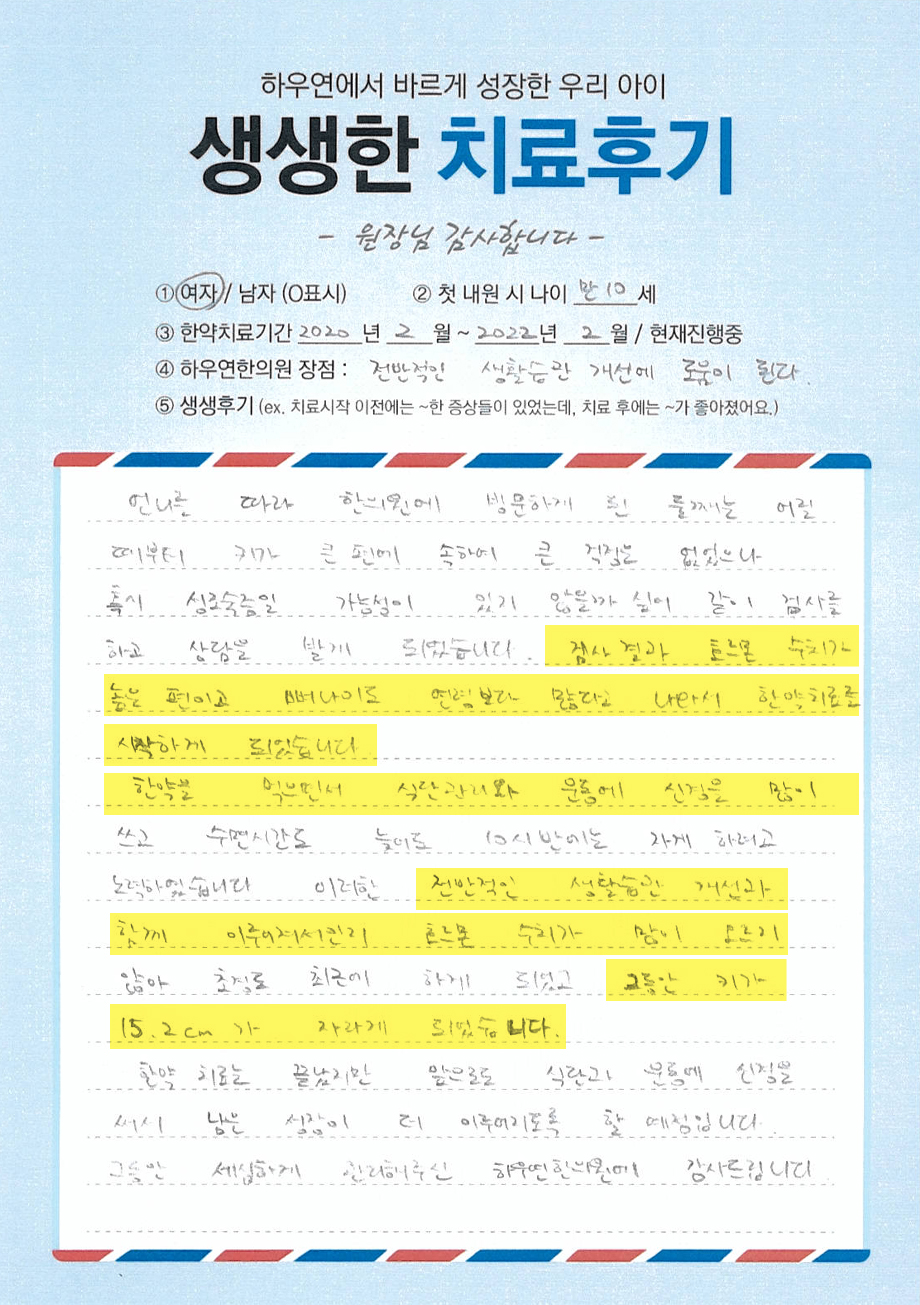 하우연에서 바르게 성장한 우리 아이
생생한 치료후기
- 원장님 감사합니다 -
① 여자 / 남자 (O표시) ② 첫 내원 시 나이 만 10 세
③ 한약치료기간 2020 년 2 월 ~ 2022년 2 월 / 현재진행중
④ 하우연한의원 장점 : 전반적인 생활습관 개선에 도움이 된다.
⑤ 생생후기 (ex. 치료시작 이전에는 ~한 증상들이 있었는데, 치료 후에는 ~가 좋아졌어요.)
언니를 따라 한의원에 방문하게 된 둘째는 어릴
때부터 키가 큰 편에 속하여 큰 걱정은 없었으나
혹시 성조숙증일 가능성이 있지 않을까 싶어 같이 검사를
하고 상담을 받게 되었습니다. 검사 결과 호르몬 수치가
높은 편이고 뼈나이도 연령보다 많다고 나와서 한약치료를
시작하게 되었습니다.
한약을 먹으면서 식단관리와 운동에 신경을 많이
쓰고 수면시간도 늘여도 10시 반에는 자게 하려고
노력하였습니다 이러한 전반적인 생활습관 개선과
함께 이루어져서인지 호르몬 수치가 많이 오르지
않아 초경도 최근에 하게 되었고 그동안 키가
15.2cm 가 자라게 되었습니다.
한약 치료는 끝났지만 앞으로도 식단과 운동에 신경을
써서 남은 성장이 더 이루어지도록 할 예정입니다.
그동안 세심하게 관리해주신 하우연한의원에 감사드립니다